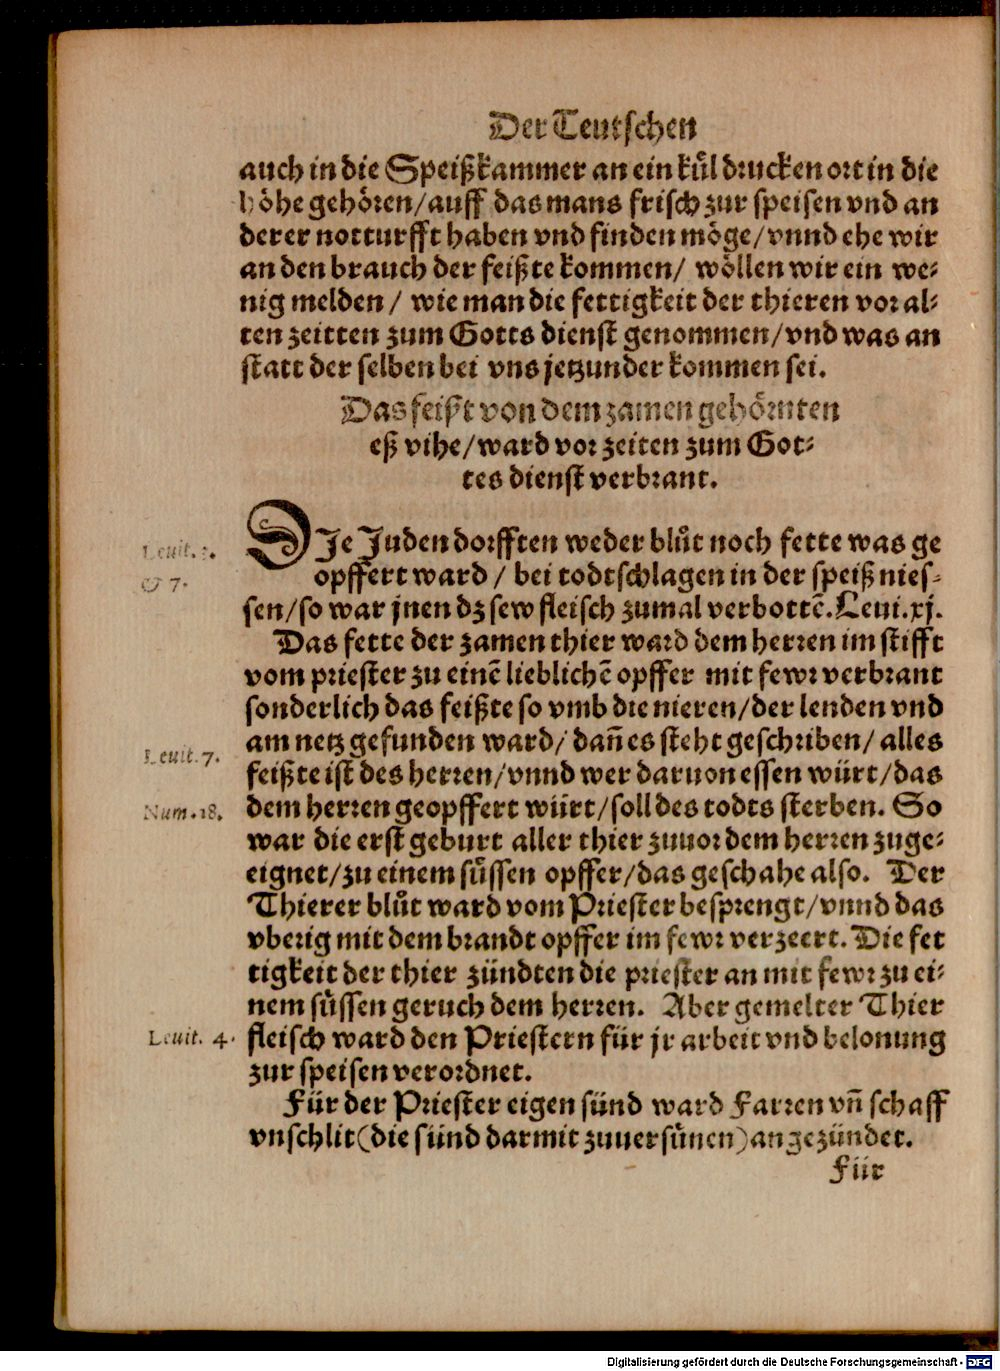 Der Teutschen
auch in die Speißkammer an ein kůl drucken ort in die
höhe gehören/auff das mans frisch zur speisen vnd an
derer notturfft haben vnd finden möge/vnnd ehe wir
an den brauch der feißte kommen/ wöllen wir ein we⸗
nig melden/ wie man die fettigkeit der thieren vor al⸗
ten zeitten zum Gotts dienst genommen/vnd was an
statt der selben bei vns jetzunder kommen sei.
Das feißt von dem zamen gehörnten
eß vihe/ward vor zeiten zum Got⸗
tes dienst verbrant.
DIe Juden dorfften weder blůt noch fette was ge
Leuit. 3.
opffert ward / bei todtschlagen in der speiß nies⸗
& 7.
sen/so war jnen dz sew fleisch zumal verbottē. Leui.xj.
Das fette der zamen thier ward dem herren im stifft
vom priester zu einē lieblichē opffer mit fewr verbrant
sonderlich das feißte so vmb die nieren/der lenden vnd
am netz gefunden ward/ dañ es steht geschriben/ alles
Leuit. 7.
feißte ist des herren/vnnd wer daruon essen würt/das
dem herren geopffert würt/soll des todts sterben. So
Num. 18.
war die erst geburt aller thier zuuor dem herren zuge⸗
eignet/zu einem süssen opffer/das geschahe also. Der
Thierer blůt ward vom Priester besprengt/vnnd das
vberig mit dem brandt opffer im fewr verzeert. Die fet
tigkeit der thier zündten die priester an mit fewr zu ei⸗
nem süssen geruch dem herren. Aber gemelter Thier
fleisch ward den Priestern für jr arbeit vnd belonung
Leuit. 4.
zur speisen verordnet.
Für der Priester eigen sünd ward Farren vñ schaff
vnschlit(die sünd darmit zuuersünen)angezündet.
Für
Digitalisierung gefördert durch die Deutsche Forschungsgemeinschaft - DFG